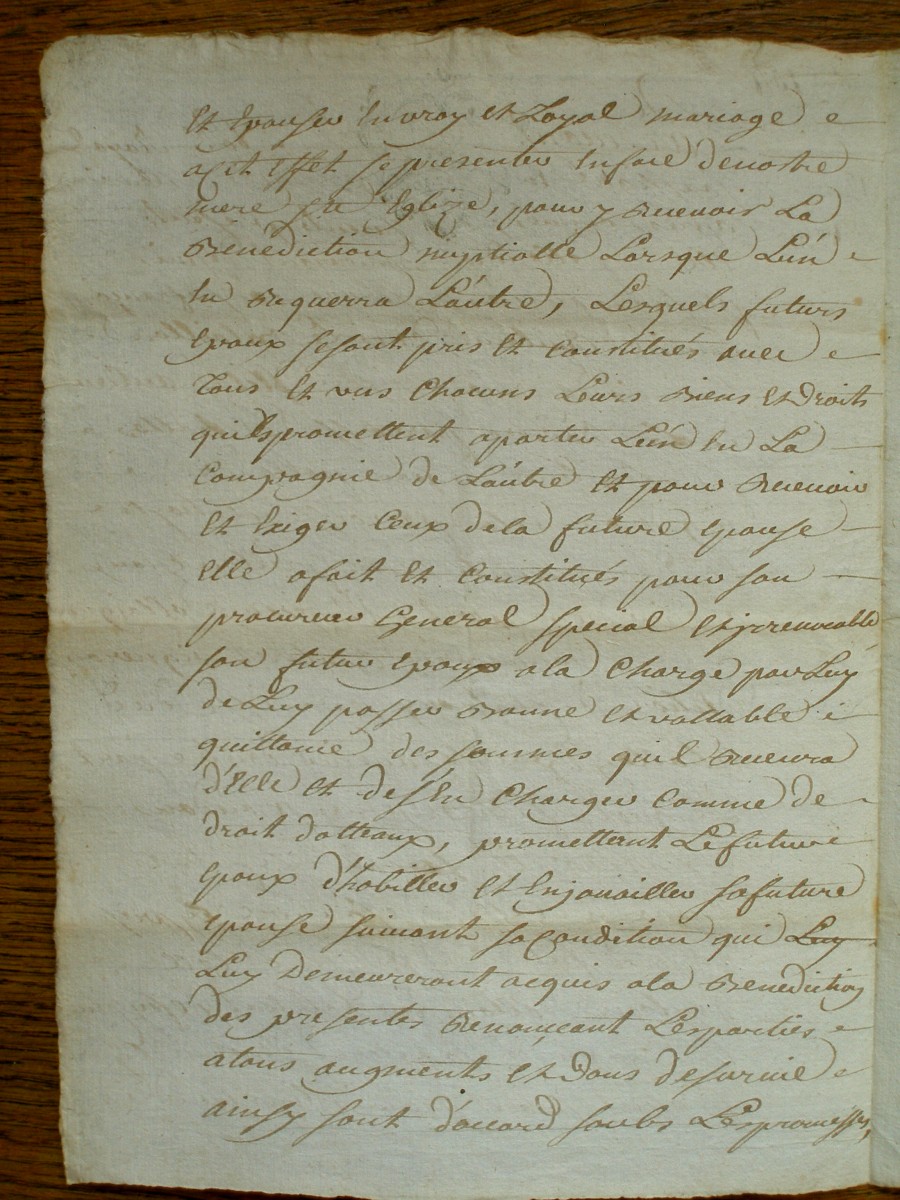 Et Epouser En vray et Loyal mariage e
a cet Effet se presenter En face de nostre
mere Ste Eglize, pour y Recevoir La
Benediction nuptialle Lorsque Lún
En Requerra Láutre, Lesquels futurs
Epoux se sont pris Et Constitués avec e
Tous Et vns Chacuns Leurs Biens Et Droits
qu'ils promettent aporter Lún En La
Compagnie de Láutre Et pour Recevoir
Et Exiger Ceux de la future Epouse
Elle a fait Et Constitués pour son
procureur General special Et jrrevocable
son futur Epoux a la Charge par Luy
de Luy passer Bonne et vallable
quittance des sommes quil Recevra
d'Elle Et de s'En Charger Comme de
droit dotteaux, promettant Le futur
Epoux d'habiller Et Enjouailler sa future
Epouse suivant sa Condition qui Luy
Luy Demeureront acquis a la Benediction
des presentes Renonçant Les parties e
a tous augments Et Dons de survie e
ainsy sont d'accord soubs Les promesses,